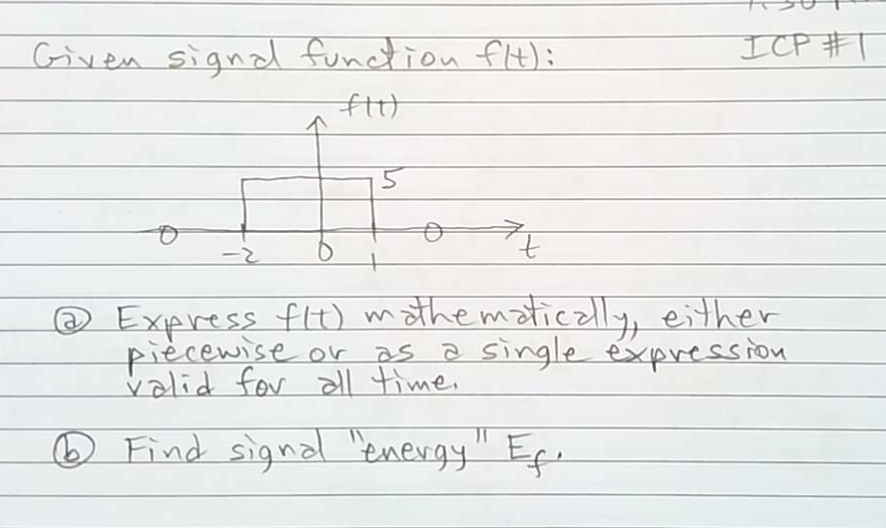 Given signal function f(t):
ICP #1
f(t)
5
0 -2 0 1 0 t
(a) Express f(t) mathematically, either
piecewise or as a single expression
valid for all time.
(b) Find signal "energy" Ef.